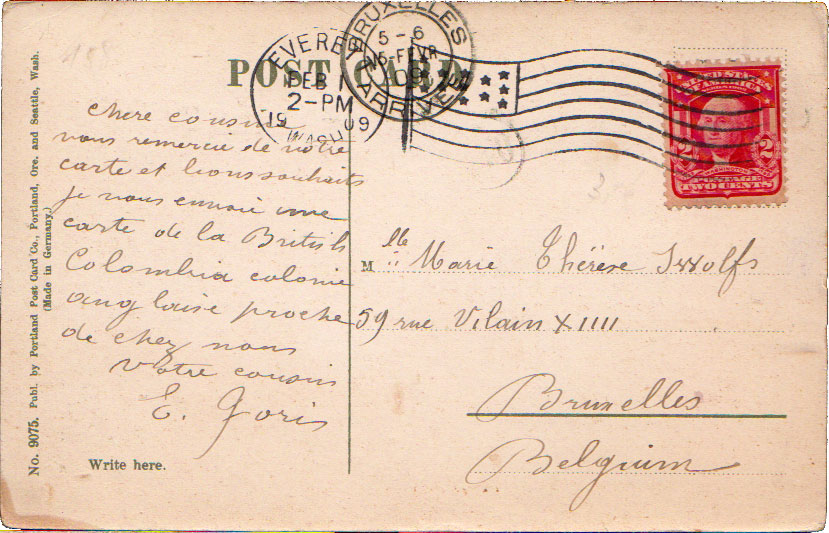 POST CARD
EVERETT
FEB 1
2-PM
19 09
WASH.
BRUXELLES
5-6
15-FEVR
09
ARRIVEE
UNITED STATES
OF AMERICA
2 2
POSTAGE
TWO CENTS
No. 9075. Publ. by Portland Post Card Co., Portland, Ore. and Seattle, Wash.
(Made in Germany.)
Chere cousine
vous remercie de votre
carte et bons souhaits
je vous envoie une
carte de la British
Colombia colonie
anglaise proche
de chez nous
Votre cousin
E. Joris
Write here.
Mlle Marie Thérèse
59 rue Vilain XIIII
Bruxelles
Belgium